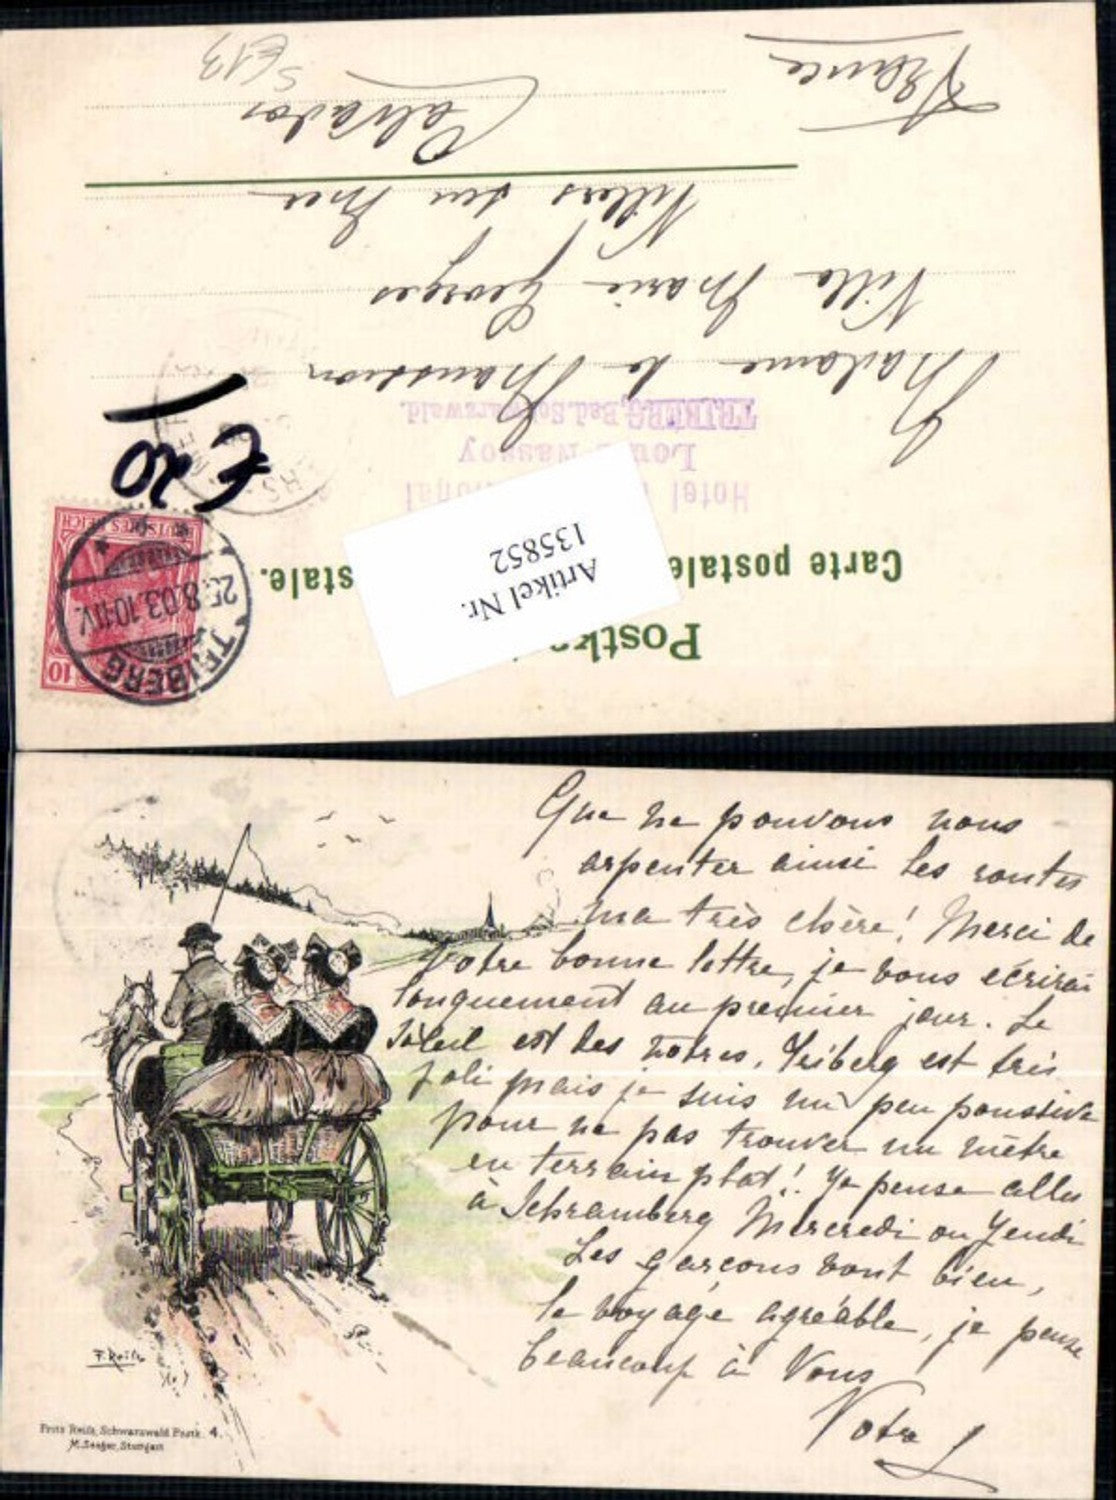 Postk
Carte postale stale.
Artikel Nr.
135852
Hotel
Louis Massoy
TRIBERG, Bad. Schwarzwald.
TRIBERG
25.8.03.10-11V.
DEUTSCHES REICH
10
€ 20
Madame le
Villa Marie Georges
Villers sur Mer
Calvados
France
S613
Que ne pouvons nous
arpenter ainsi les routes
ma très chère! Merci de
votre bonne lettre, je vous écrirai
longuement au premier jour. Le
soleil est des nôtres. Triberg est très
joli mais je suis un peu poussive
pour ne pas trouver un mètre
en terrain plat! Je pense aller
à Schramberg Mercredi ou Jeudi
Les garçons vont bien,
le voyage agréable, je pense
beaucoup à Vous
Votre L
F. Reiß
Fritz Reiß, Schwarzwald Postk. 4.
M. Seeger, Stuttgart